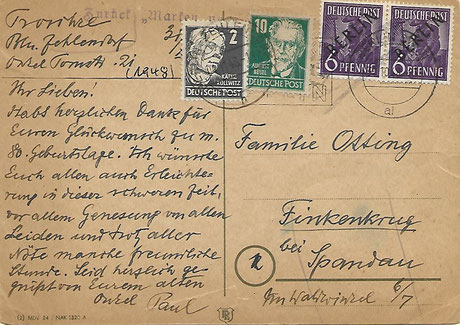 Zurück Marken
Bln. Zehlendorf
Onkel Tomstr. 21
(1948)
2
KÄTHE KOLLWITZ
DEUTSCHE POST
10
AUGUST BEBEL
DEUTSCHE POST
DEUTSCHE POST
BERLIN
6 PFENNIG
DEUTSCHE POST
BERLIN
6 PFENNIG
Ihr Lieben!
Habt herzlichen Dank für
Euren Glückwunsch zu m.
80. Geburtstage. Ich wünsche
Euch allen auch Erleichte-
rung in dieser schweren Zeit,
vor allem Genesung von allen
Leiden und trotz aller
Nöte manche freundliche
Stunde. Seid herzlich ge-
grüßt von Eurem alten
Onkel Paul
Familie Otting
Finkenkrug
bei
Spandau
Am Waldwinkel 6/7